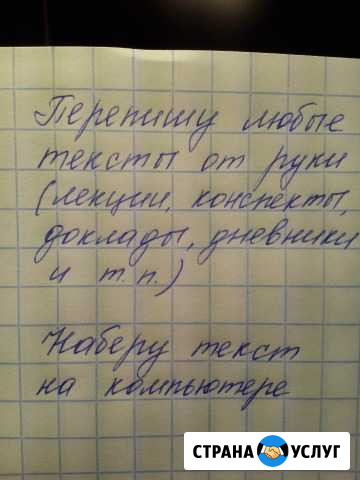 Перепишу любые
тексты от руки
(лекции, конспекты,
доклады, дневники
и т.п.)
Наберу текст
на компьютере
СТРАНА УСЛУГ